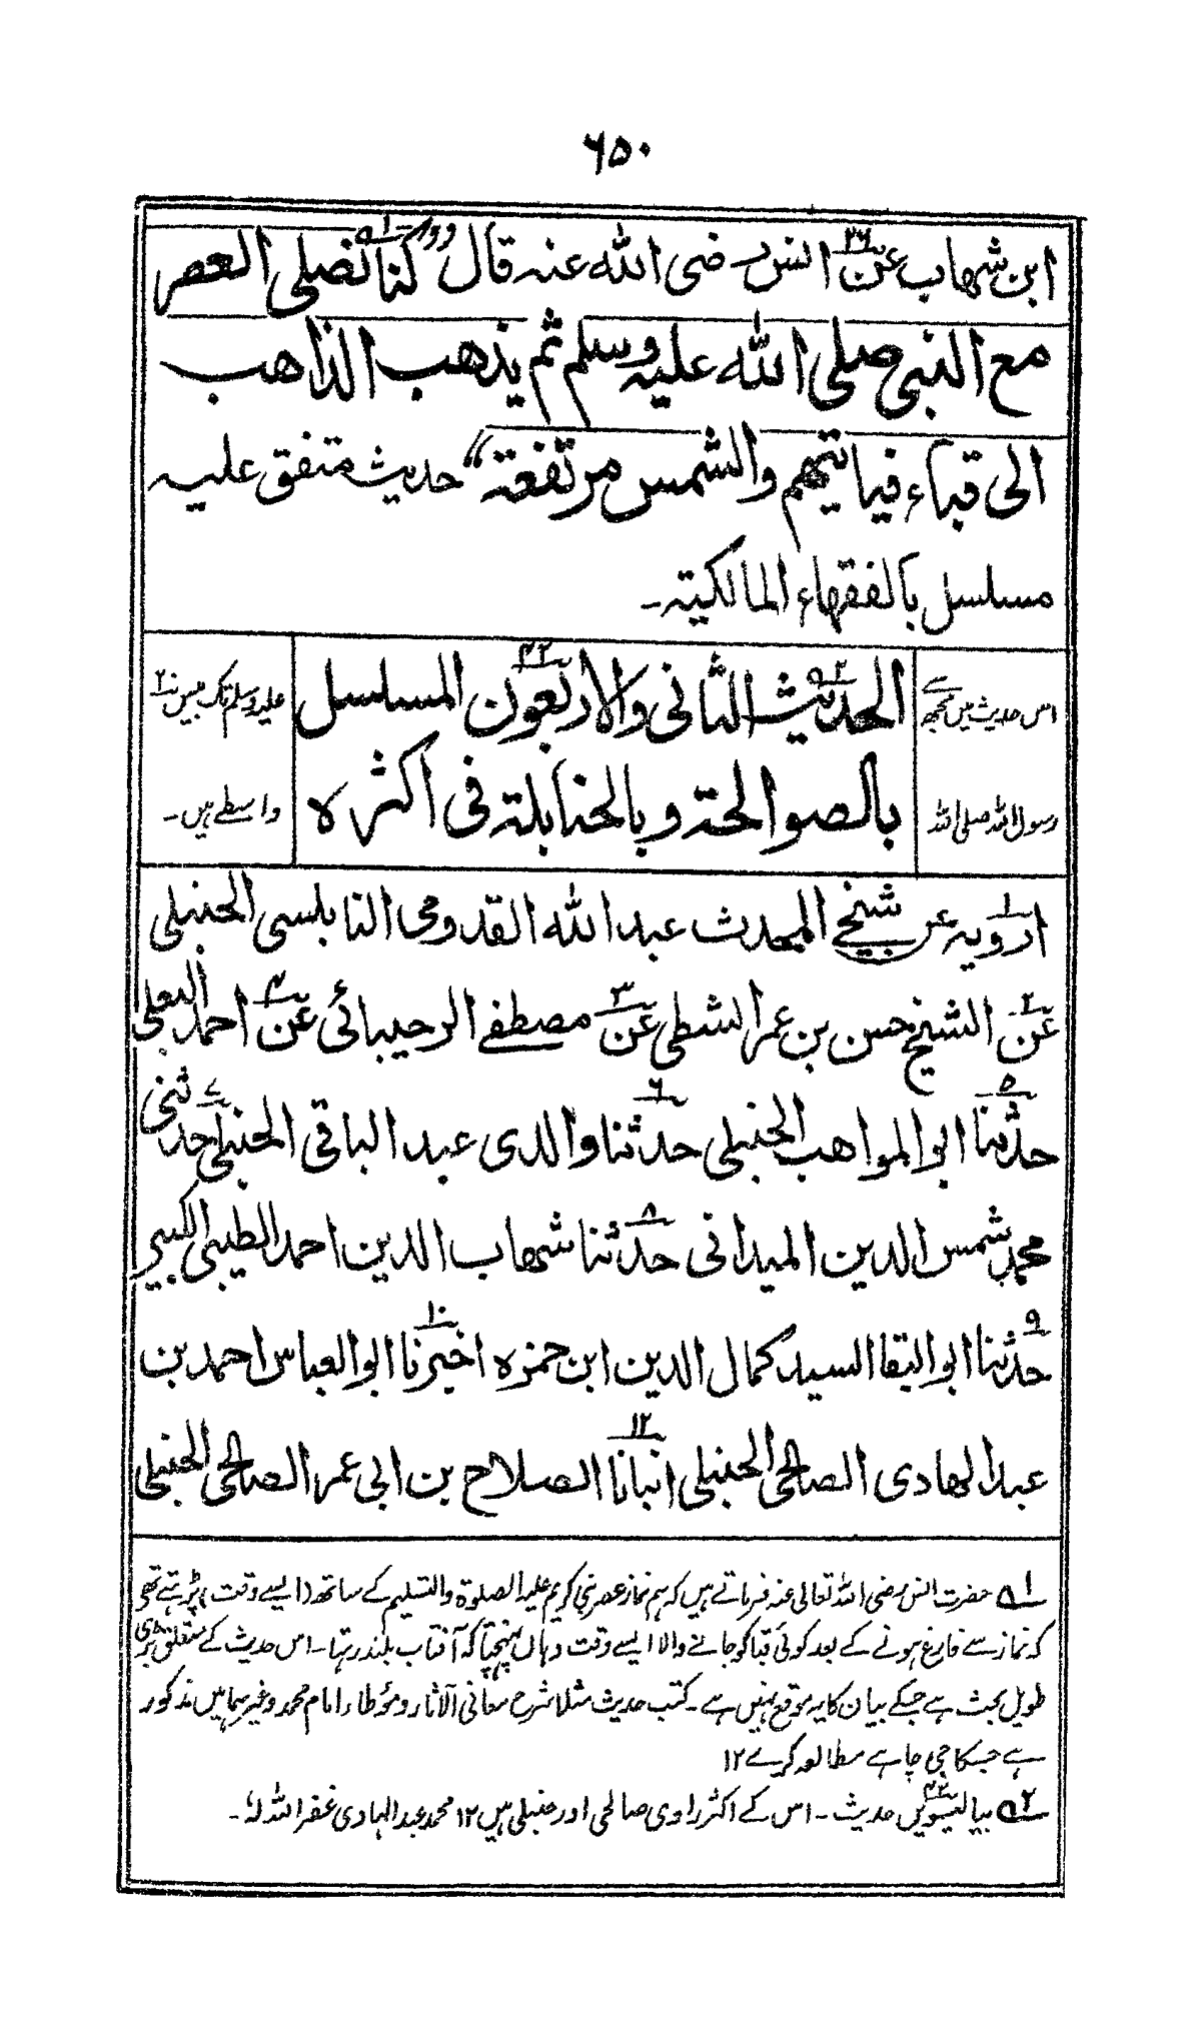 ۶۵۰
ابن شهاب عن۲۶ انس رضی الله عنه قال ”كنا۱ نصلی العصر
مع النبی صلی الله علیه وسلم ثم یذهب الذاهب
الی قباء فیاتیهم والشمس مرتفعة“ حدیث متفق علیه
مسلسل بالفقهاء المالكیة۔
الحدیث۲ الثانی والاربعون۴۲ المسلسل
بالصوالحة وبالحنابلة فی اكثره
اس حدیث میں مجھ سے
رسول الله صلی الله
علیه وسلم تک بیس۲۰
واسطے ہیں۔
ارویه۱ عن شیخی المحدث عبد الله القدومی النابلسی الحنبلی
عن۲ الشیخ حسن بن عمر الشطی عن۳ مصطفے الرحیبائی عن۴ احمد البعلی
حدثنا۵ ابو المواهب الحنبلی حدثنا۶ والدی عبد الباقی الحنبلی حدثنی۷
محمد شمس الدین المیدانی حدثنا۸ شهاب الدین احمد الطیبی الكبیر
حدثنا۹ ابو البقا السید كمال الدین ابن حمزه اخبرنا۱۰ ابو العباس احمد بن
عبد الهادی الصالحی الحنبلی انبانا۱۲ الصلاح بن ابی عمر الصالحی الحنبلی
۱ حضرت انس رضی الله تعالی عنه فرماتے ہیں کہ ہم نماز عصر نبی کریم علیه الصلوة والتسلیم کے ساتھ (ایسے وقت) پڑہتے تھے
کہ نماز سے فارغ ہونے کے بعد کوئی قبا کو جانے والا ایسے وقت وہاں پہنچتا کہ آفتاب بلند رہتا۔ اس حدیث کے متعلق بڑی
طویل بحث ہے جسکے بیان کا یہ موقع نہیں ہے۔ کتب حدیث مثلا شرح معانی الآثار و مؤطاء امام محمد وغیرہما میں مذکور
ہے جسکا جی چاہے مطالعہ کرے ۱۲
۲ بیالیسویں۴۲ حدیث۔ اس کے اکثر راوی صالحی اور حنبلی ہیں ۱۲ محمد عبد الہادی غفر الله لہٗ۔